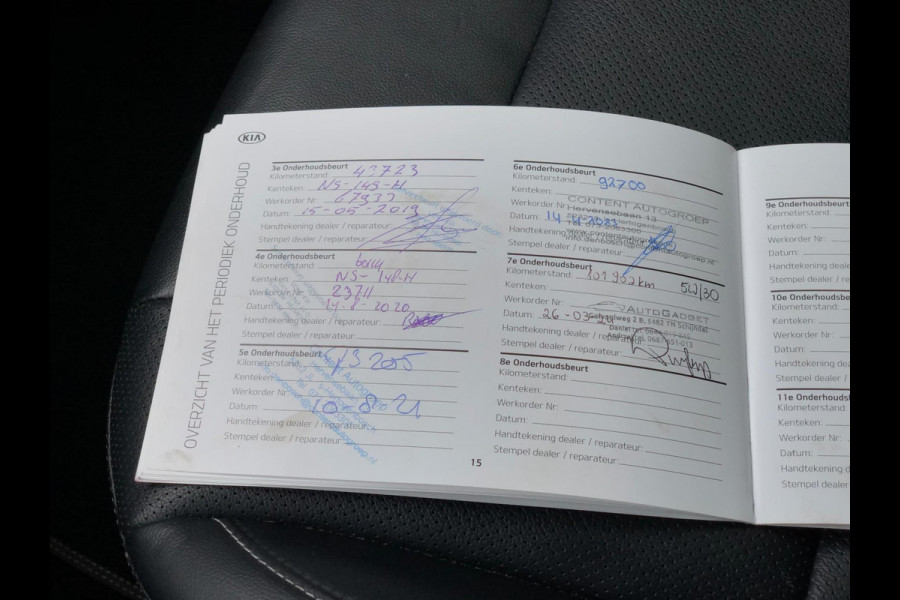 KIA
OVERZICHT VAN HET PERIODIEK ONDERHOUD
3e Onderhoudsbeurt
Kilometerstand: 43723
Kenteken: NS-148-H
Werkorder Nr: 67933
Datum: 15-05-2019
Handtekening dealer / reparateur:
Stempel dealer / reparateur:
4e Onderhoudsbeurt
Kilometerstand:
Kenteken: NS-148-H
Werkorder Nr: 23711
Datum: 14-8-2020
Handtekening dealer / reparateur:
Stempel dealer / reparateur:
5e Onderhoudsbeurt
Kilometerstand: 73205
Kenteken:
Werkorder Nr:
Datum: 10-8-21
Handtekening dealer / reparateur:
Stempel dealer / reparateur:
6e Onderhoudsbeurt
Kilometerstand: 92700
Kenteken:
CONTENT AUTOGROEP
Werkorder Nr:
Hervensebaan 13
Datum: 14
Handtekening dealer / reparateur:
Stempel dealer / reparateur:
7e Onderhoudsbeurt
Kilometerstand: km 5W/30
Kenteken:
Werkorder Nr:
AUTOGADGET
Datum: 26-03-24
Handtekening dealer / reparateur:
Stempel dealer / reparateur:
8e Onderhoudsbeurt
Kilometerstand:
Kenteken:
Werkorder Nr:
Datum:
Handtekening dealer / reparateur:
Stempel dealer / reparateur:
15
9e Onderhoudsbeurt
Kilometerstand:
Kenteken:
Werkorder Nr:
Datum:
Handtekening
Stempel dealer
10e Onderhoudsb
Kilometerstand:
Kenteken:
Werkorder Nr:
Datum:
Handtekening
Stempel dealer
11e Onderhoudsb
Kilometerstand:
Kenteken:
Werkorder Nr:
Datum:
Handtekening
Stempel dealer